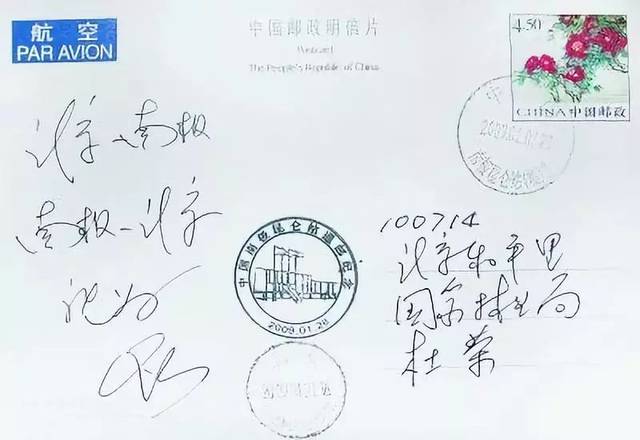 航空
PAR AVION
中国邮政明信片
Postcard
The People's Republic of China
4.50
CHINA中国邮政
北京–南极
南极–北京
中国南极昆仑站通邮纪念
2009.01.28
100714
北京和平里
国家林业局
杜荣